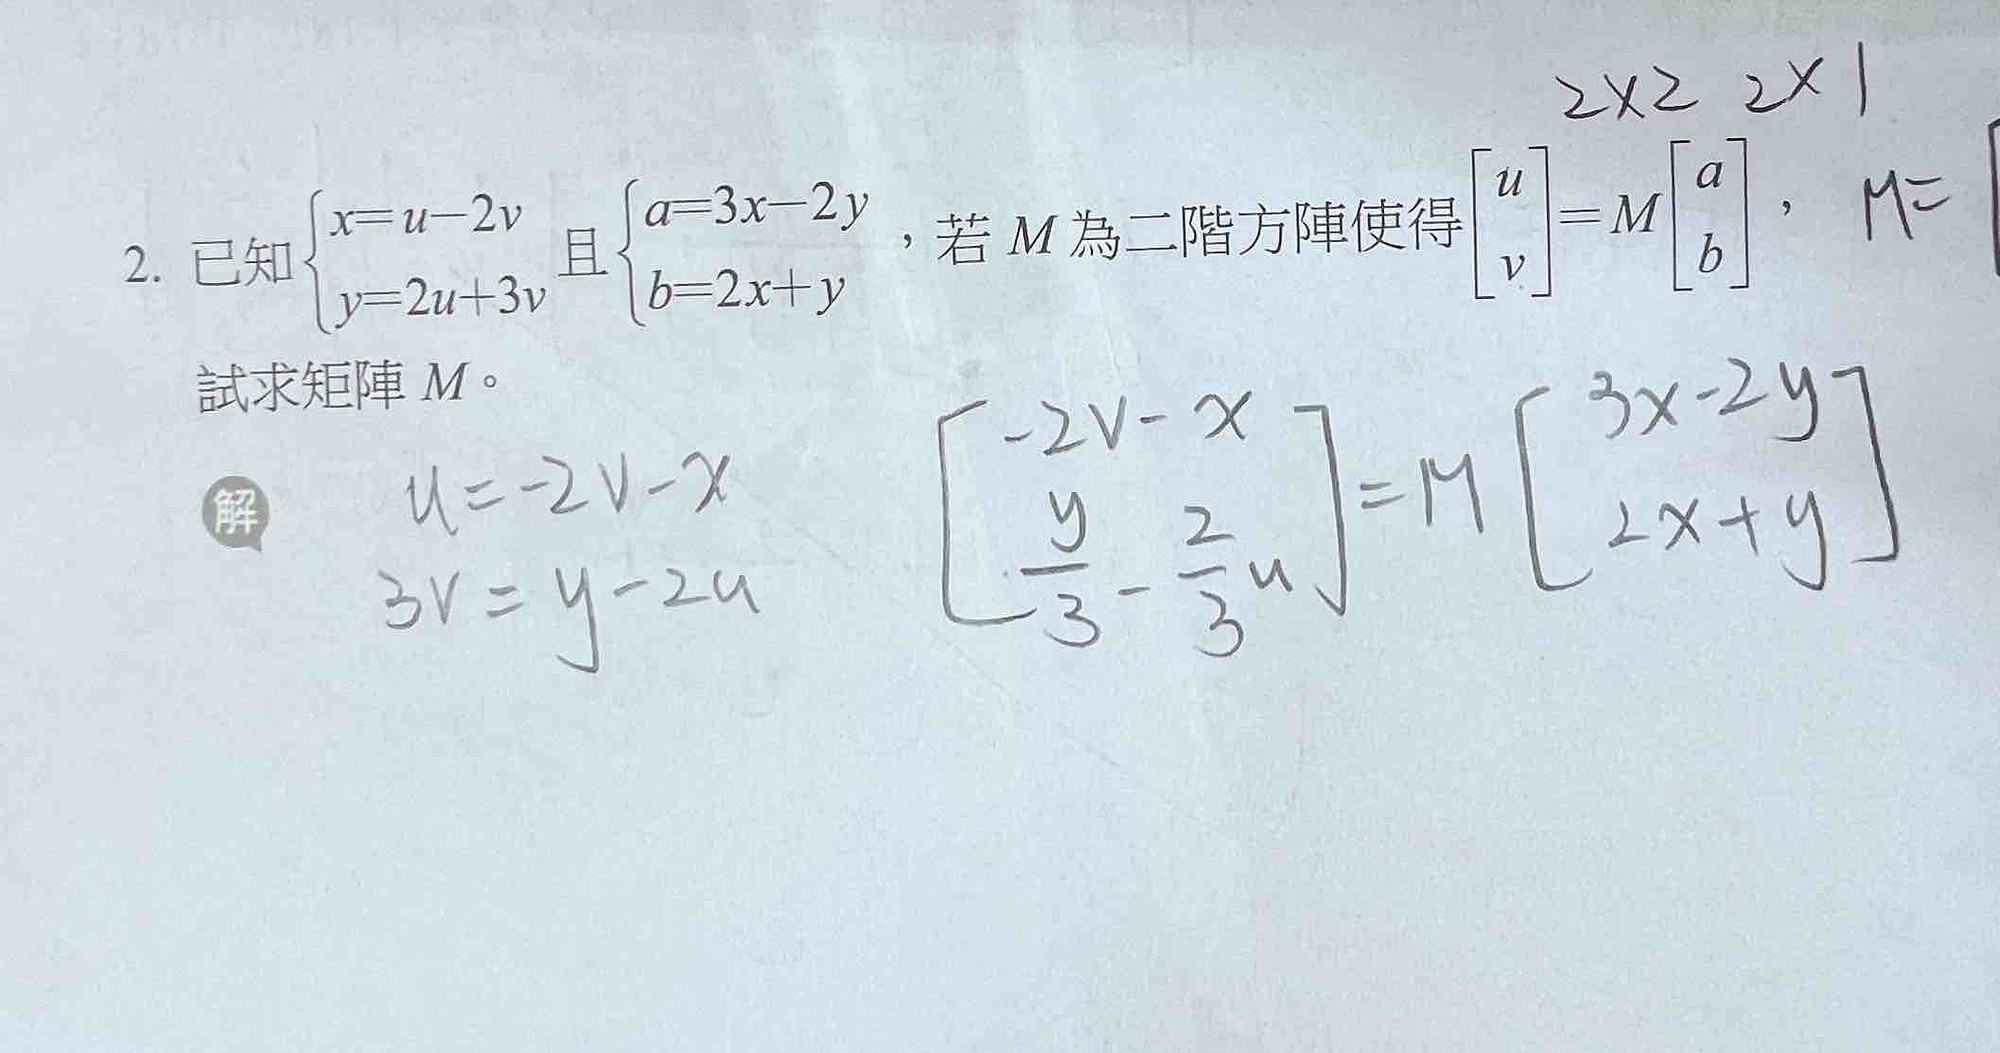 2×2 2×1
2. 已知{x=u−2v y=2u+3v 且{a=3x−2y b=2x+y ，若 M 為二階方陣使得[u v]=M[a b]， M=[
試求矩陣 M。
解
u=-2v-x
3v=y-2u
[-2v-x y/3-2/3u]=M[3x-2y 2x+y]